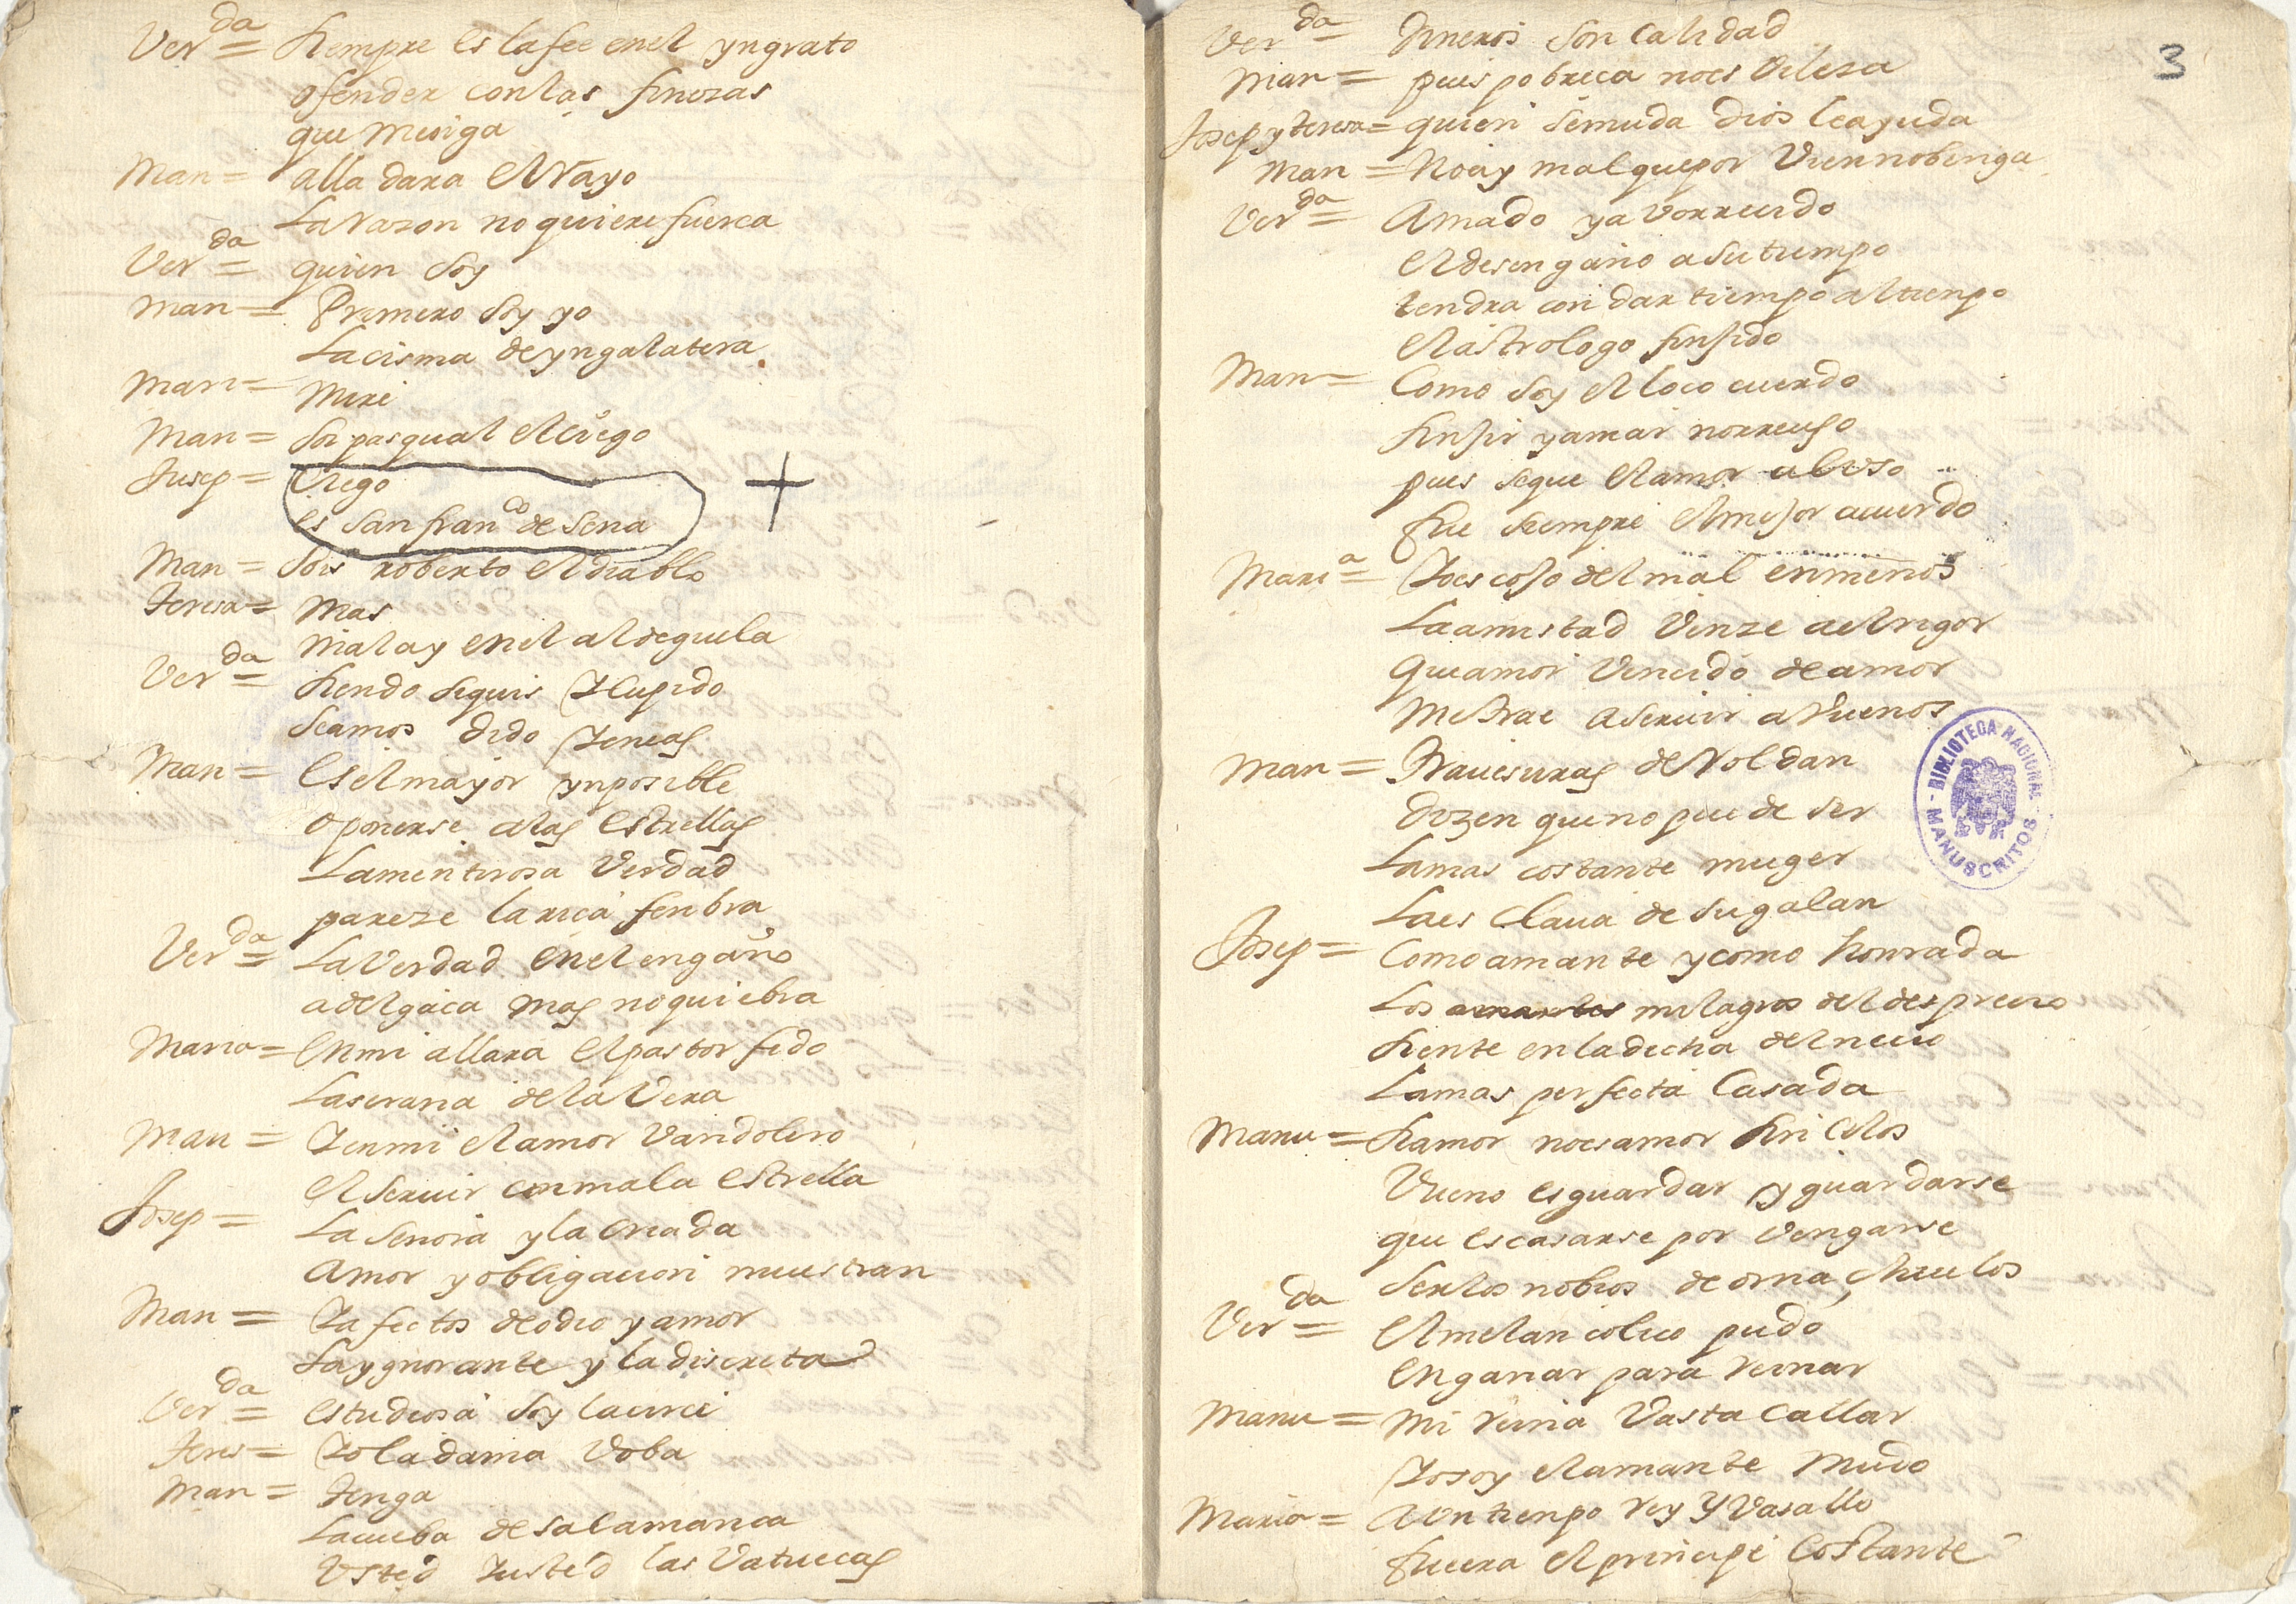 Ver^da = Siempre es la fee en el yngrato
ofender con las finezas
que mesiga
Man = alla dara el Rayo
La Razon no quiere fuerca
Ver^da = quien soy
man = Primero soy yo
La cisma de yngalatera
Mari = Mire
Man = soi pasqual el ciego
Jusep = Ciego
es san fran^co de sena
Man = sois roberto el diablo
Teresa = Mas
mal ay en el aldeguela
Ver^da = siendo siquis Y Cupido
seamos dido Y eneas
Man = Es el mayor ynposible
oponerse a las estrellas
La mentirosa Verdad
pareze la rica fenbra
Ver^da = La Verdad en el engaño
adelgaca mas no quiebra
Maria = En mi allara el pastor fido
La serana de la Vera
Man = Y en mi el amor Vandolero
el seruir con mala estrella
Josep = La senora y la criada
Amor y obligacion muestran
Man = Y afectos de odio y amor
La ygnorante y la discreta
Ver^da = estudiosa soy lacirce
Teres = Yo la dama boba
Man = Tenga
La cueba de salamanca
Usted Y usted las Vatuecas
3
Ver^da = Dineros son calidad
Man = pues pobreca no es Vileza
Josep y Teresa = quien se muda dios le ayuda
Man = No ay mal que por Vien no benga
Ver^da = Amado y avorrecido
el desengaño a su tiempo
tendra con dar tiempo al tienpo
el astrologo finjido
Man = Como soy el loco cuerdo
finjir y amar no rreuso
pues se que el amor al uso
fue siempre el mejor acuerdo
Mari^a = Y o escojo del mal en menos
La amistad Vinze ael rigor
que amor Vencido de amor
me trae a seruir a buenos
Man = Trauesuras de Roldan
dizen que no puede ser
La mas costante muger
La esclaua de su galan
Josep = Como amante y como honrada
Los amantes milagros del desprecio
siente en la dicha del necio
La mas perfecta Casada
Manu = si amor no es amor sin Celos
Vueno es guardar y guardarse
que es casarse por Vengarse
ser los nobios de ornachuelos
Ver^da = El melancolico pudo
enganar para reinar
Manu = Mi reina Vasta callar
Yo soy el amante Mudo
Maria = A Un tienpo rey Y Vasallo
fuera el principe Costante
BIBLIOTECA NACIONAL
MANUSCRITOS